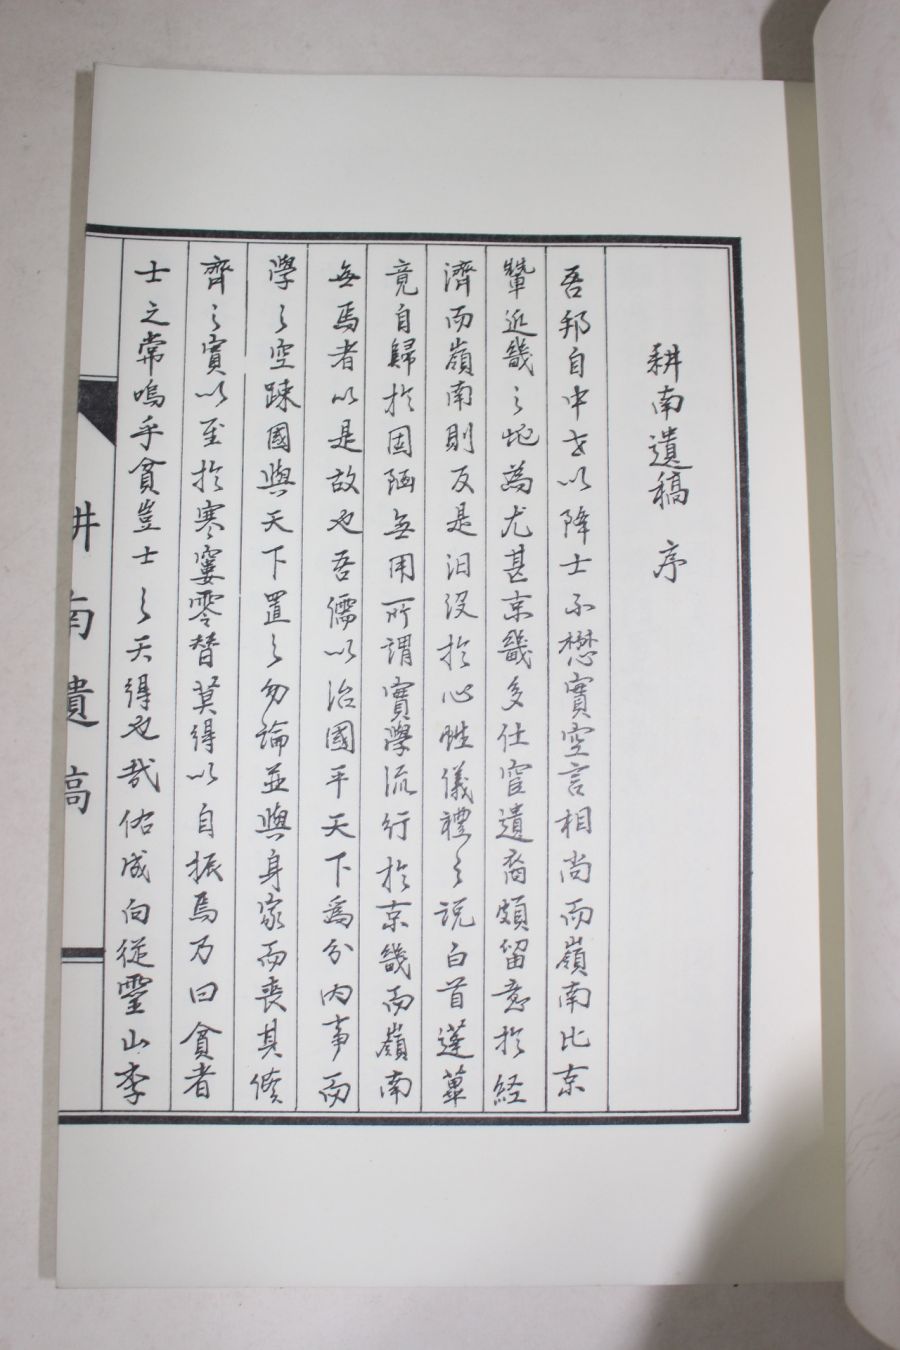 耕南遺稿 序
吾邦自中古以降士不懋實空言相尚而嶺南比京
輦近畿之地為尤甚京畿多仕宦遺裔頗留意於經
濟而嶺南則反是汨沒於心性儀禮之說白首蓬蓽
竟自歸於固陋無用所謂實學流行於京畿而嶺南
無焉者以是故也吾儒以治國平天下爲分內事而
學之空疎國與天下置之勿論並與身家而喪其脩
齊之實以至於寒窶零替莫得以自振焉乃曰貧者
士之常嗚乎貧豈士之天得也哉佑成向從霊山李
耕南遺稿